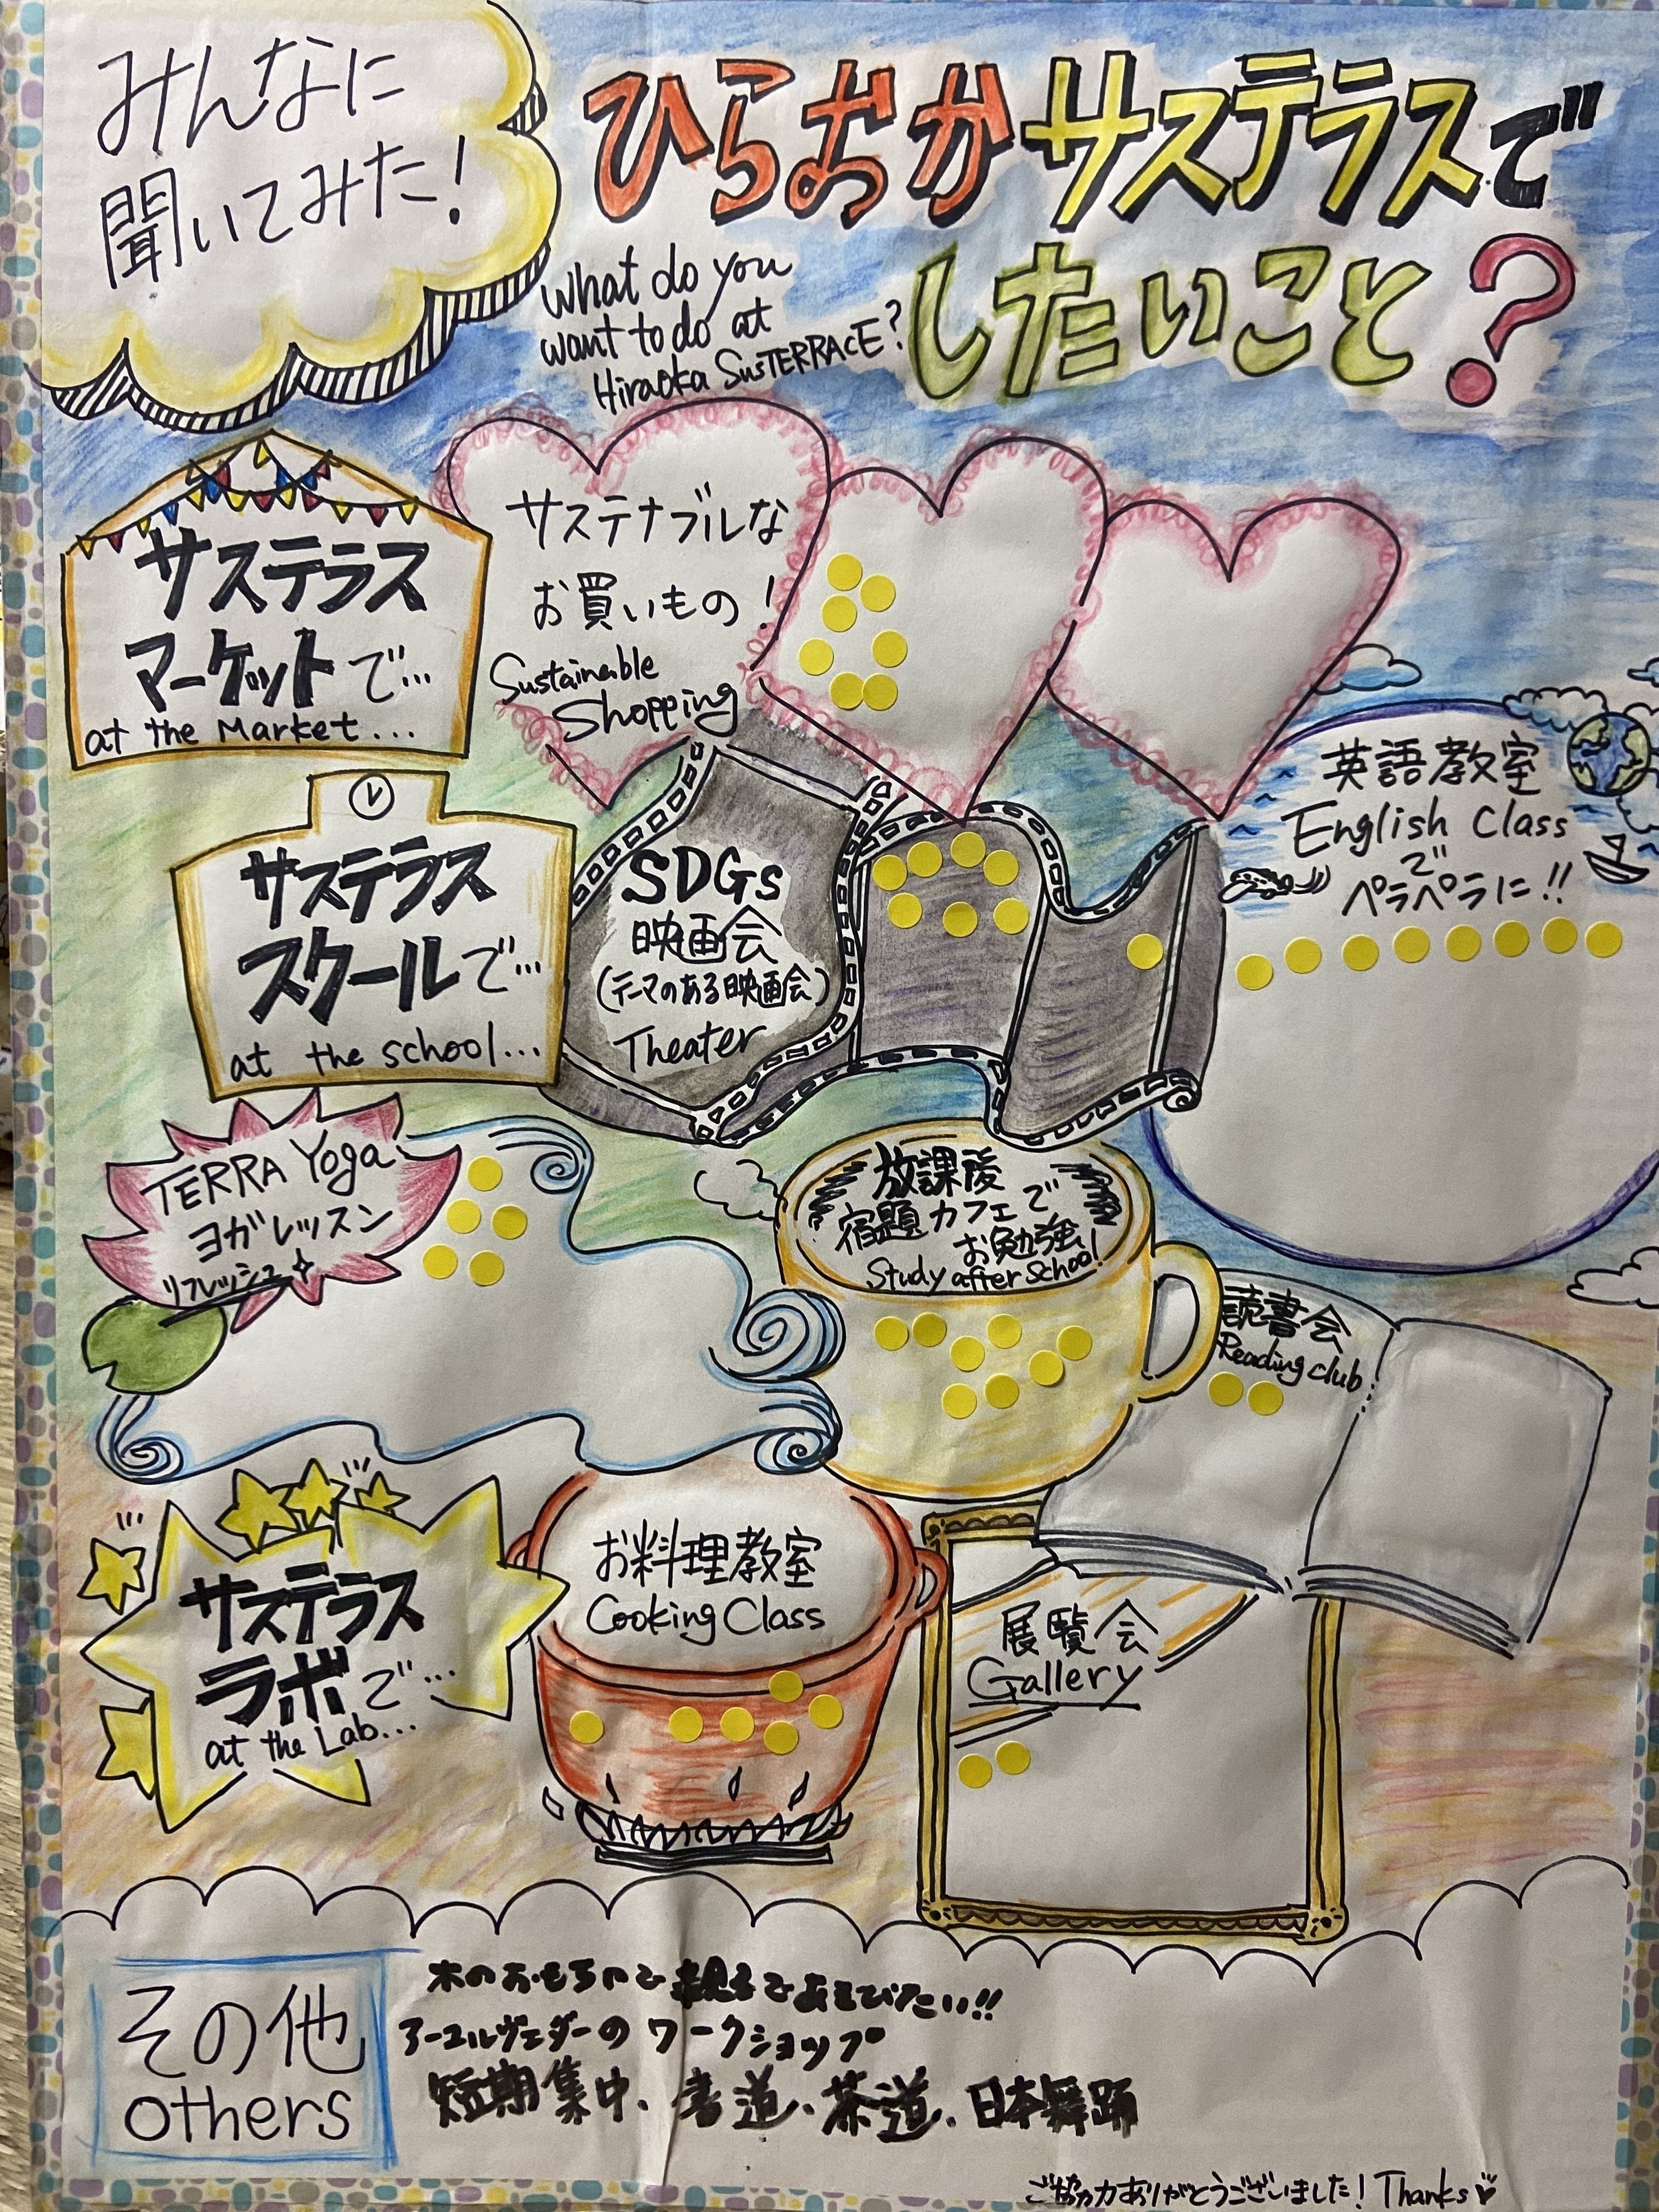 みんなに
聞いてみた!
ひらおかサステラスで
したいこと?
What do you
want to do at
Hiraoka SusTERRACE?
サステラス
マーケットで…
at the Market...
サステナブルな
お買いもの!
Sustainable
Shopping
サステラス
スクールで…
at the school...
SDGs
映画会
(テーマのある映画会)
Theater
英語教室
English Class
で
ペラペラに!!
TERRA Yoga
ヨガレッスン
リフレッシュ
放課後
宿題カフェで
お勉強!
Study after School!
読書会
Reading club
サステラス
ラボで…
at the Lab...
お料理教室
Cooking Class
展覧会
Gallery
その他
others
木のおもちゃで親子であそびたい!!
アーユルヴェダーのワークショップ
短期集中、書道、茶道、日本舞踊
ご協力ありがとうございました! Thanks